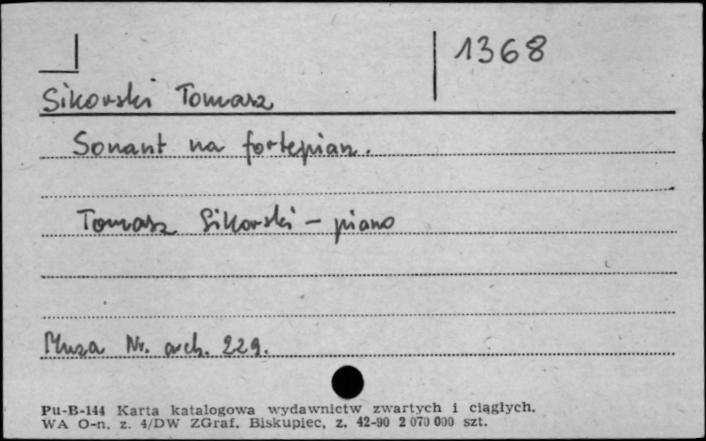 1368
Sikorski Tomasz
Sonant na fortepian.
Tomasz Sikorski - piano
Muza Nr. arch. 229.
Pu-B-144 Karta katalogowa wydawnictw zwartych i ciągłych.
WA O-n. z. 4/DW ZGraf. Biskupiec, z. 42-90 2 070 000 szt.